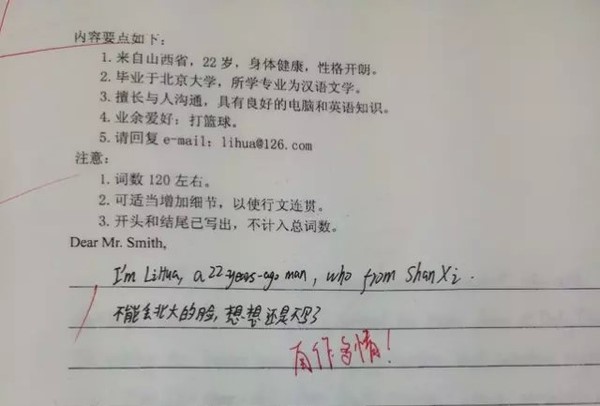 内容要点如下:
1. 来自山西省，22 岁，身体健康，性格开朗。
2. 毕业于北京大学，所学专业为汉语文学。
3. 擅长与人沟通，具有良好的电脑和英语知识。
4. 业余爱好：打篮球。
5. 请回复 e-mail: lihua@126.com
注意：
1. 词数 120 左右。
2. 可适当增加细节，以使行文连贯。
3. 开头和结尾已写出，不计入总词数。
Dear Mr. Smith,
I'm LiHua, a 22-years-ago man, who from ShanXi.
不能丢北大的脸，想想还是不写了
自作多情！